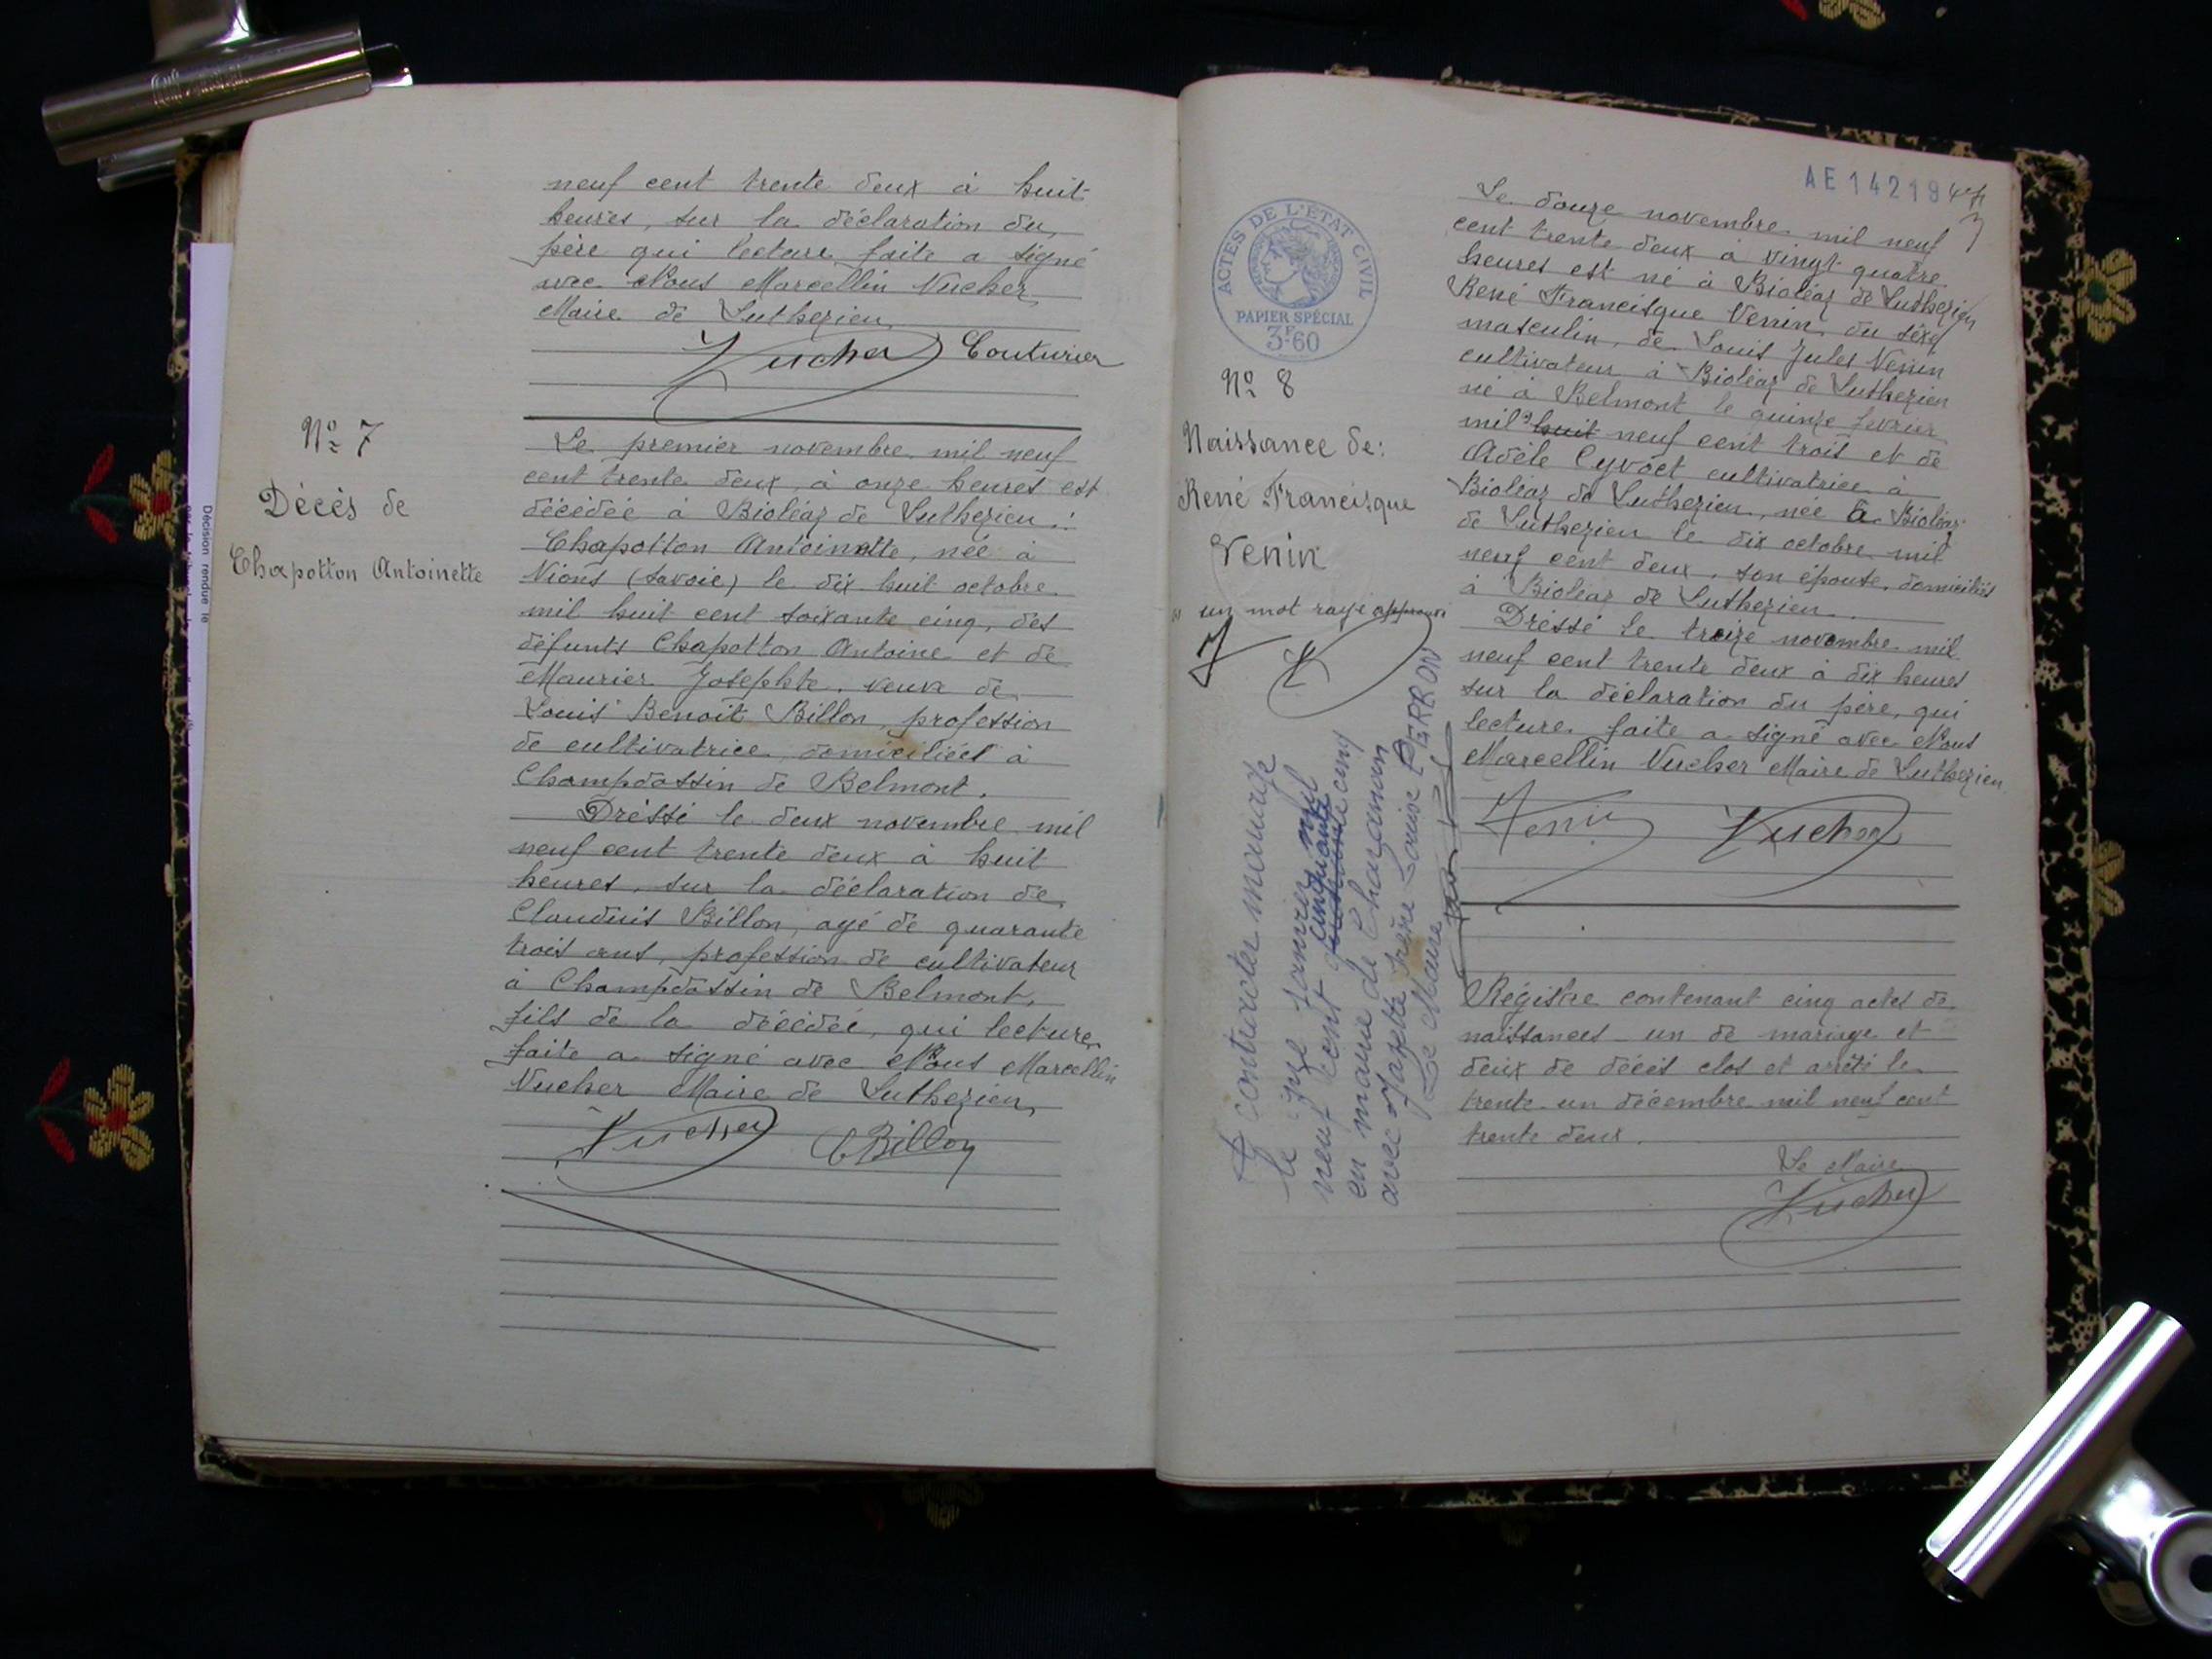 neuf cent trente deux à huit
heures, sur la déclaration du
père qui lecture faite a signé
avec Nous Marcellin Vucher
Maire de Luthezieu
Vucher Couturier
Nº 7
Décès de
Chapotton Antoinette
Le premier novembre mil neuf
cent trente deux, à onze heures est
décédée à Bioléaz de Luthezieu :
Chapotton Antoinette, née à
Nions (Savoie) le dix huit octobre
mil huit cent soixante cinq, des
défunts Chapotton Antoine et de
Maurier Josephte, veuve de
Louis Benoit Billon, profession
de cultivatrice, domiciliéet à
Champdossin de Belmont.
Dréssé le deux novembre mil
neuf cent trente deux à huit
heures, sur la déclaration de
Claudius Billon, agé de quarante
trois ans, profession de cultivateur
à Champdossin de Belmont,
fils de la décédée, qui lecture
faite a signé avec Nous Marcellin
Vucher Maire de Luthezieu
Vucher CBillon
Décision rendue le
AE 14219
ACTES DE L'ÉTAT CIVIL
PAPIER SPÉCIAL
3F60
Nº 8
Naissance de:
René Francisque
Venin
un mot rayé approuvé
A contracté mariage
le onze janvier mil
neuf cent cinquante cinq
en mairie de
avec Louise PERRON
Le Maire
Le douze novembre mil neuf
cent trente deux à vingt quatre
heures est né à Bioléaz de Luthezieu
René Francisque Venin, du séxe
masculin, de Louis Jules Venin
cultivateur à Bioléaz de Luthezieu
né à Belmont le quinze fevrier
mil huit neuf cent trois et de
Adèle Cyvoct cultivatrice à
Bioléaz de Luthezieu, née à Bioléaz
de Luthezieu le dix octobre mil
neuf cent deux, son épouse, domiciliés
à Bioléaz de Luthezieu.
Dréssé le treize novembre mil
neuf cent trente deux à dix heures
sur la déclaration du père, qui
lecture faite a signé avec Nous
Marcellin Vucher Maire de Luthezieu
Venin Vucher
Régistre contenant cinq actes de
naissances un de mariage et
deux de décès clos et arrêté le
trente un décembre mil neuf cent
trente deux.
Le Maire
Vucher